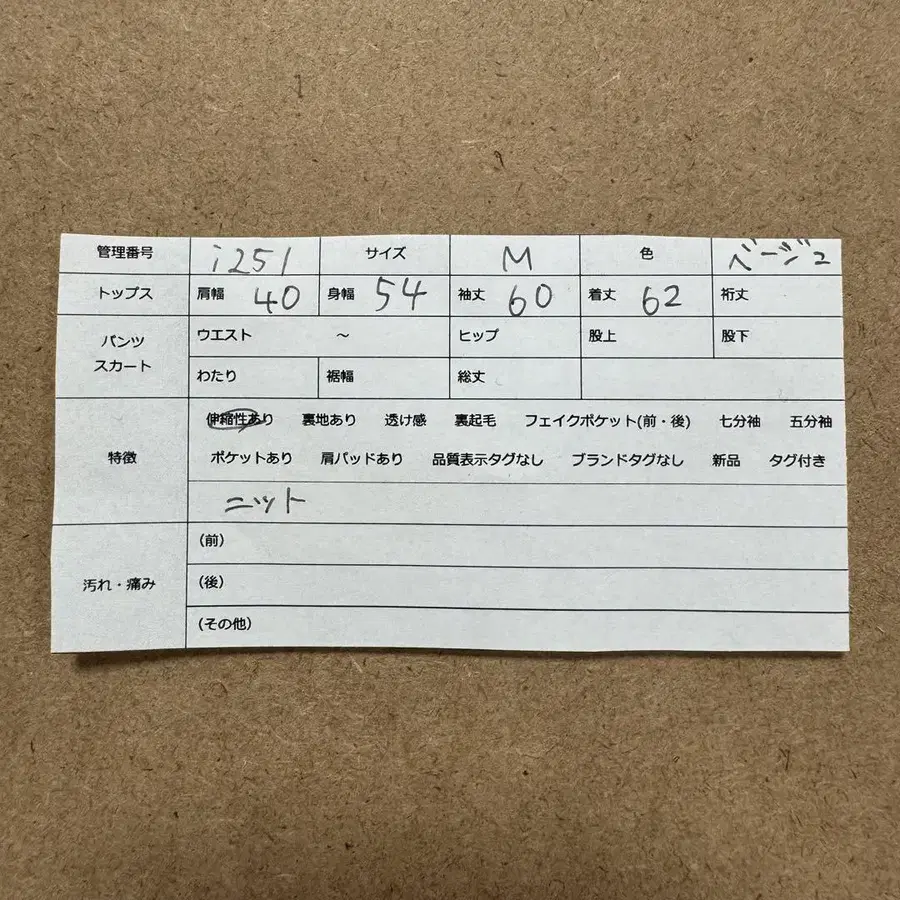 管理番号 i251 サイズ M 色 ベージュ
トップス 肩幅 40 身幅 54 袖丈 60 着丈 62 裄丈
パンツ スカート ウエスト ～ ヒップ 股上 股下
わたり 裾幅 総丈
特徴 伸縮性あり 裏地あり 透け感 裏起毛 フェイクポケット(前・後) 七分袖 五分袖
ポケットあり 肩パッドあり 品質表示タグなし ブランドタグなし 新品 タグ付き
ニット
汚れ・痛み (前)
(後)
(その他)